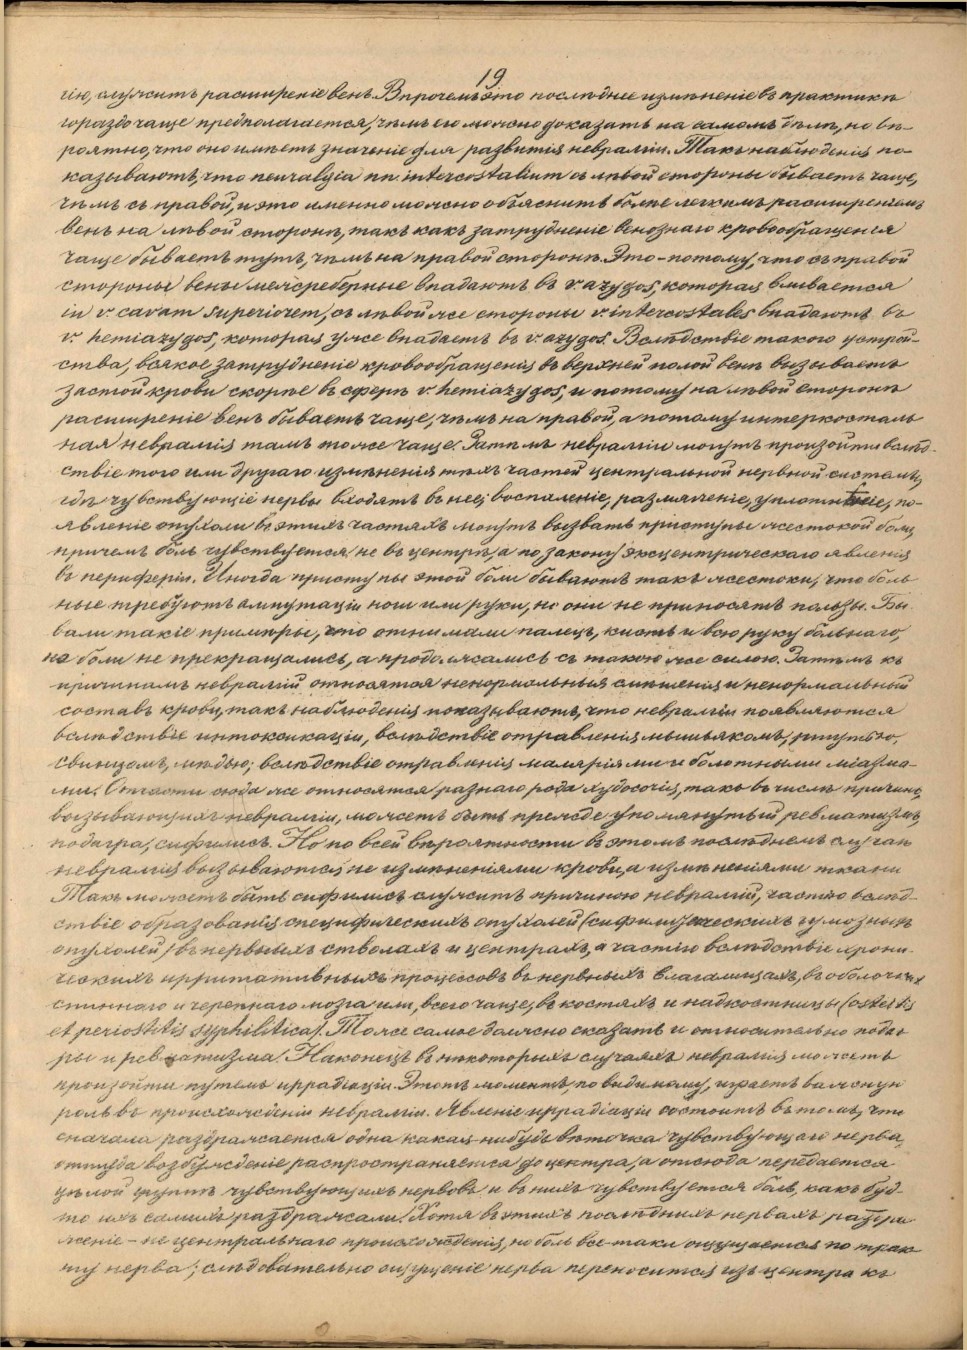 19
гію, служитъ расширеніе венъ. Впрочемъ это послѣднее измѣненіе въ практикѣ
гораздо чаще предполагается, чѣмъ его можно доказать на самомъ дѣлѣ, но вѣ-
роятно, что оно имѣетъ значеніе для развитія невралгіи. Такъ наблюденія по-
казываютъ, что neuralgia nn. intercostalium съ лѣвой стороны бываетъ чаще,
чѣмъ съ правой, и это именно можно объяснить болѣе легкимъ расширеніемъ
венъ на лѣвой сторонѣ, такъ какъ затрудненіе венознаго кровообращенія
чаще бываетъ тутъ, чѣмъ на правой сторонѣ. Это-потому, что съ правой
стороны вены межреберные впадаютъ въ v. azygos, которая вливается
in v. cavam superiorem, съ лѣвой же стороны v. intercostales впадаютъ въ
v. hemiazygos, которая уже впадаетъ въ v. azygos. Вслѣдствіе такого устрой-
ства, всякое затрудненіе кровообращенія въ верхней полой венѣ вызываетъ
застой крови скорѣе въ сферѣ v. hemiazygos, и потому на лѣвой сторонѣ
расширеніе венъ бываетъ чаще, чѣмъ на правой, а потому интеркосталь
ная невралгія тамъ тоже чаще. Затѣмъ невралгіи могутъ произойти вслѣд-
ствіе того или другаго измѣненія тѣхъ частей центральной нервной системы,
гдѣ чувствующіе нервы входятъ въ нее; воспаленіе, размягченіе, уплотненіе, по-
явленіе опухоли въ этихъ частяхъ могутъ вызвать приступы жестокой боли,
причемъ боль чувствуется не въ центрѣ, а по закону эксцентрическаго явленія
въ периферіи. Иногда приступы этой боли бываютъ такъ жестоки, что боль
ные требуютъ ампутаціи ноги или руки, но они не приносятъ пользы. Бы
вали такіе примѣры, что отнимали палецъ, кисть и всю руку больнаго,
но боли не прекращались, а продолжались съ такою же силою. Затѣмъ къ
причинамъ невралгій относятся ненормальныя смѣшенія и ненормальный
составъ крови, такъ наблюденія показываютъ, что невралгіи появляются
вслѣдствіе интоксикаціи, вслѣдствіе отравленія мышьякомъ, ртутью,
свинцомъ, мѣдью; вслѣдствіе отравленія маляріями и болотными міазма-
ми. Отчасти сюда же относятся разнаго рода худосочія, такъ въ числѣ причинъ,
вызывающихъ невралгіи, можетъ быть прежде упомянутый ревматизмъ,
подагра, сифилисъ. Но по всей вѣроятности въ этомъ послѣднемъ случаѣ
невралгія вызываются не измѣненіями крови, а измѣненіями ткани
Такъ можетъ быть сифилисъ служитъ причиною невралгій, частію вслѣд-
ствіе образованія специфическихъ опухолей (сифилитическихъ гумозныхъ
опухолей) въ нервныхъ стволахъ и центрахъ, а частію вслѣдствіе хрони-
ческихъ ирритативныхъ процессовъ въ нервныхъ влагалищахъ, въ оболочкахъ
спиннаго и черепнаго мозга или, всего чаще, въ костяхъ и надкостницы (osteitis
et periostitis syphilitica). Тоже самое должно сказать и относительно подаг-
ры и ревматизма. Наконецъ въ нѣкоторыхъ случаяхъ невралгія можетъ
произойти путемъ иррадіаціи. Этотъ моментъ, по видимому, играетъ важную
роль въ происхожденіи невралгіи. Явленіе иррадіаціи состоитъ въ томъ, что
сначала раздражается одна какая-нибудь вѣточка чувствующаго нерва,
оттуда возбужденіе распространяется до центра, а отсюда передается
цѣлой группѣ чувствующихъ нервовъ и въ нихъ чувствуется боль, какъ буд-
то ихъ самихъ раздражали. Хотя въ этихъ послѣднихъ нервахъ раздра
женіе - не центральнаго происхожденія, но боль все-таки ощущается по трак
ту нерва; слѣдовательно ощущеніе нерва переносится изъ центра къ